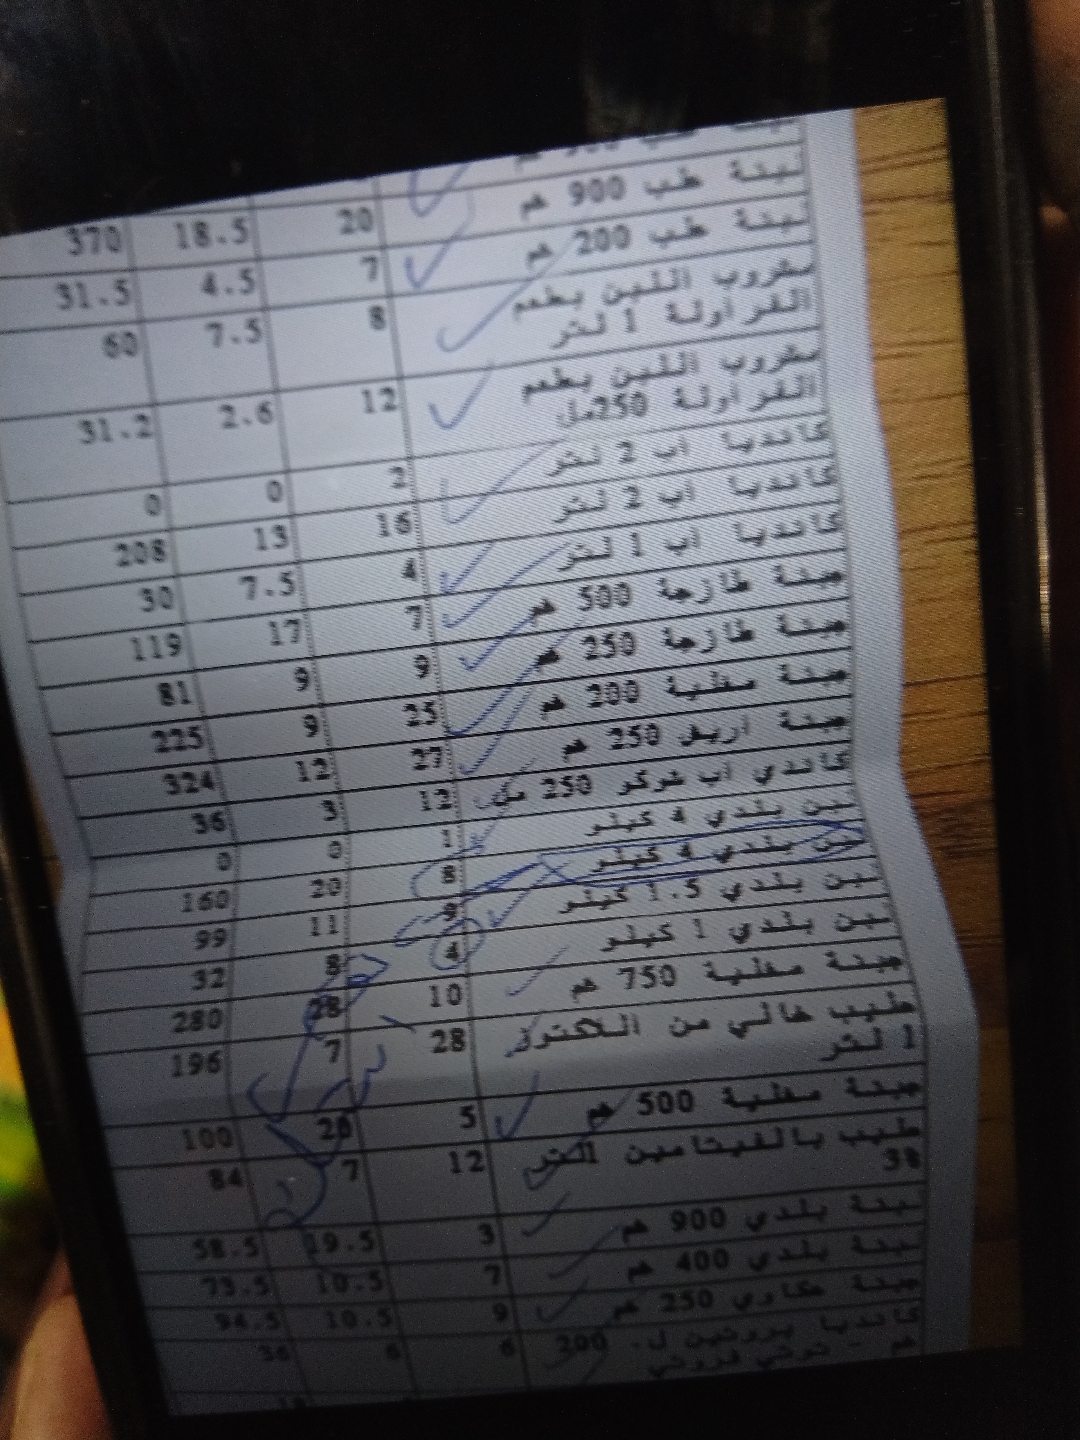 لبنة طب 900 غم 20 18.5 370
لبنة طب 200 غم 7 4.5 31.5
مشروب اللبن بطعم 8 7.5 60
الفراولة 1 لتر
مشروب اللبن بطعم 12 2.6 31.2
الفراولة 250مل
كانديا اب 2 لتر 2 0 0
كانديا اب 2 لتر 16 13 208
كانديا اب 1 لتر 4 7.5 30
جبنة طازجة 500 غم 7 17 119
جبنة طازجة 250 غم 9 9 81
جبنة مغلية 200 غم 25 9 225
جبنة 250 غم 27 12 324
كاندي اب شوكو 250 مل 12 3 36
لبن بلدي 4 كيلو 1 0 0
لبن بلدي 4 كيلو 8 20 160
لبن بلدي 1.5 كيلو 9 11 99
لبن بلدي 1 كيلو 4 8 32
جبنة مغلية 750 غم 10 28 280
حليب خالي من اللاكتوز 28 7 196
1 لتر
جبنة مغلية 500 غم 5 20 100
حليب بالفيتامين لتر 12 7 84
3%
لبنة بلدي 900 غم 3 19.5 58.5
لبنة بلدي 400 غم 7 10.5 73.5
جبنة عكاوي 250 غم 9 10.5 94.5
كانديا بروتين ل- 200 6 6 36
غم -